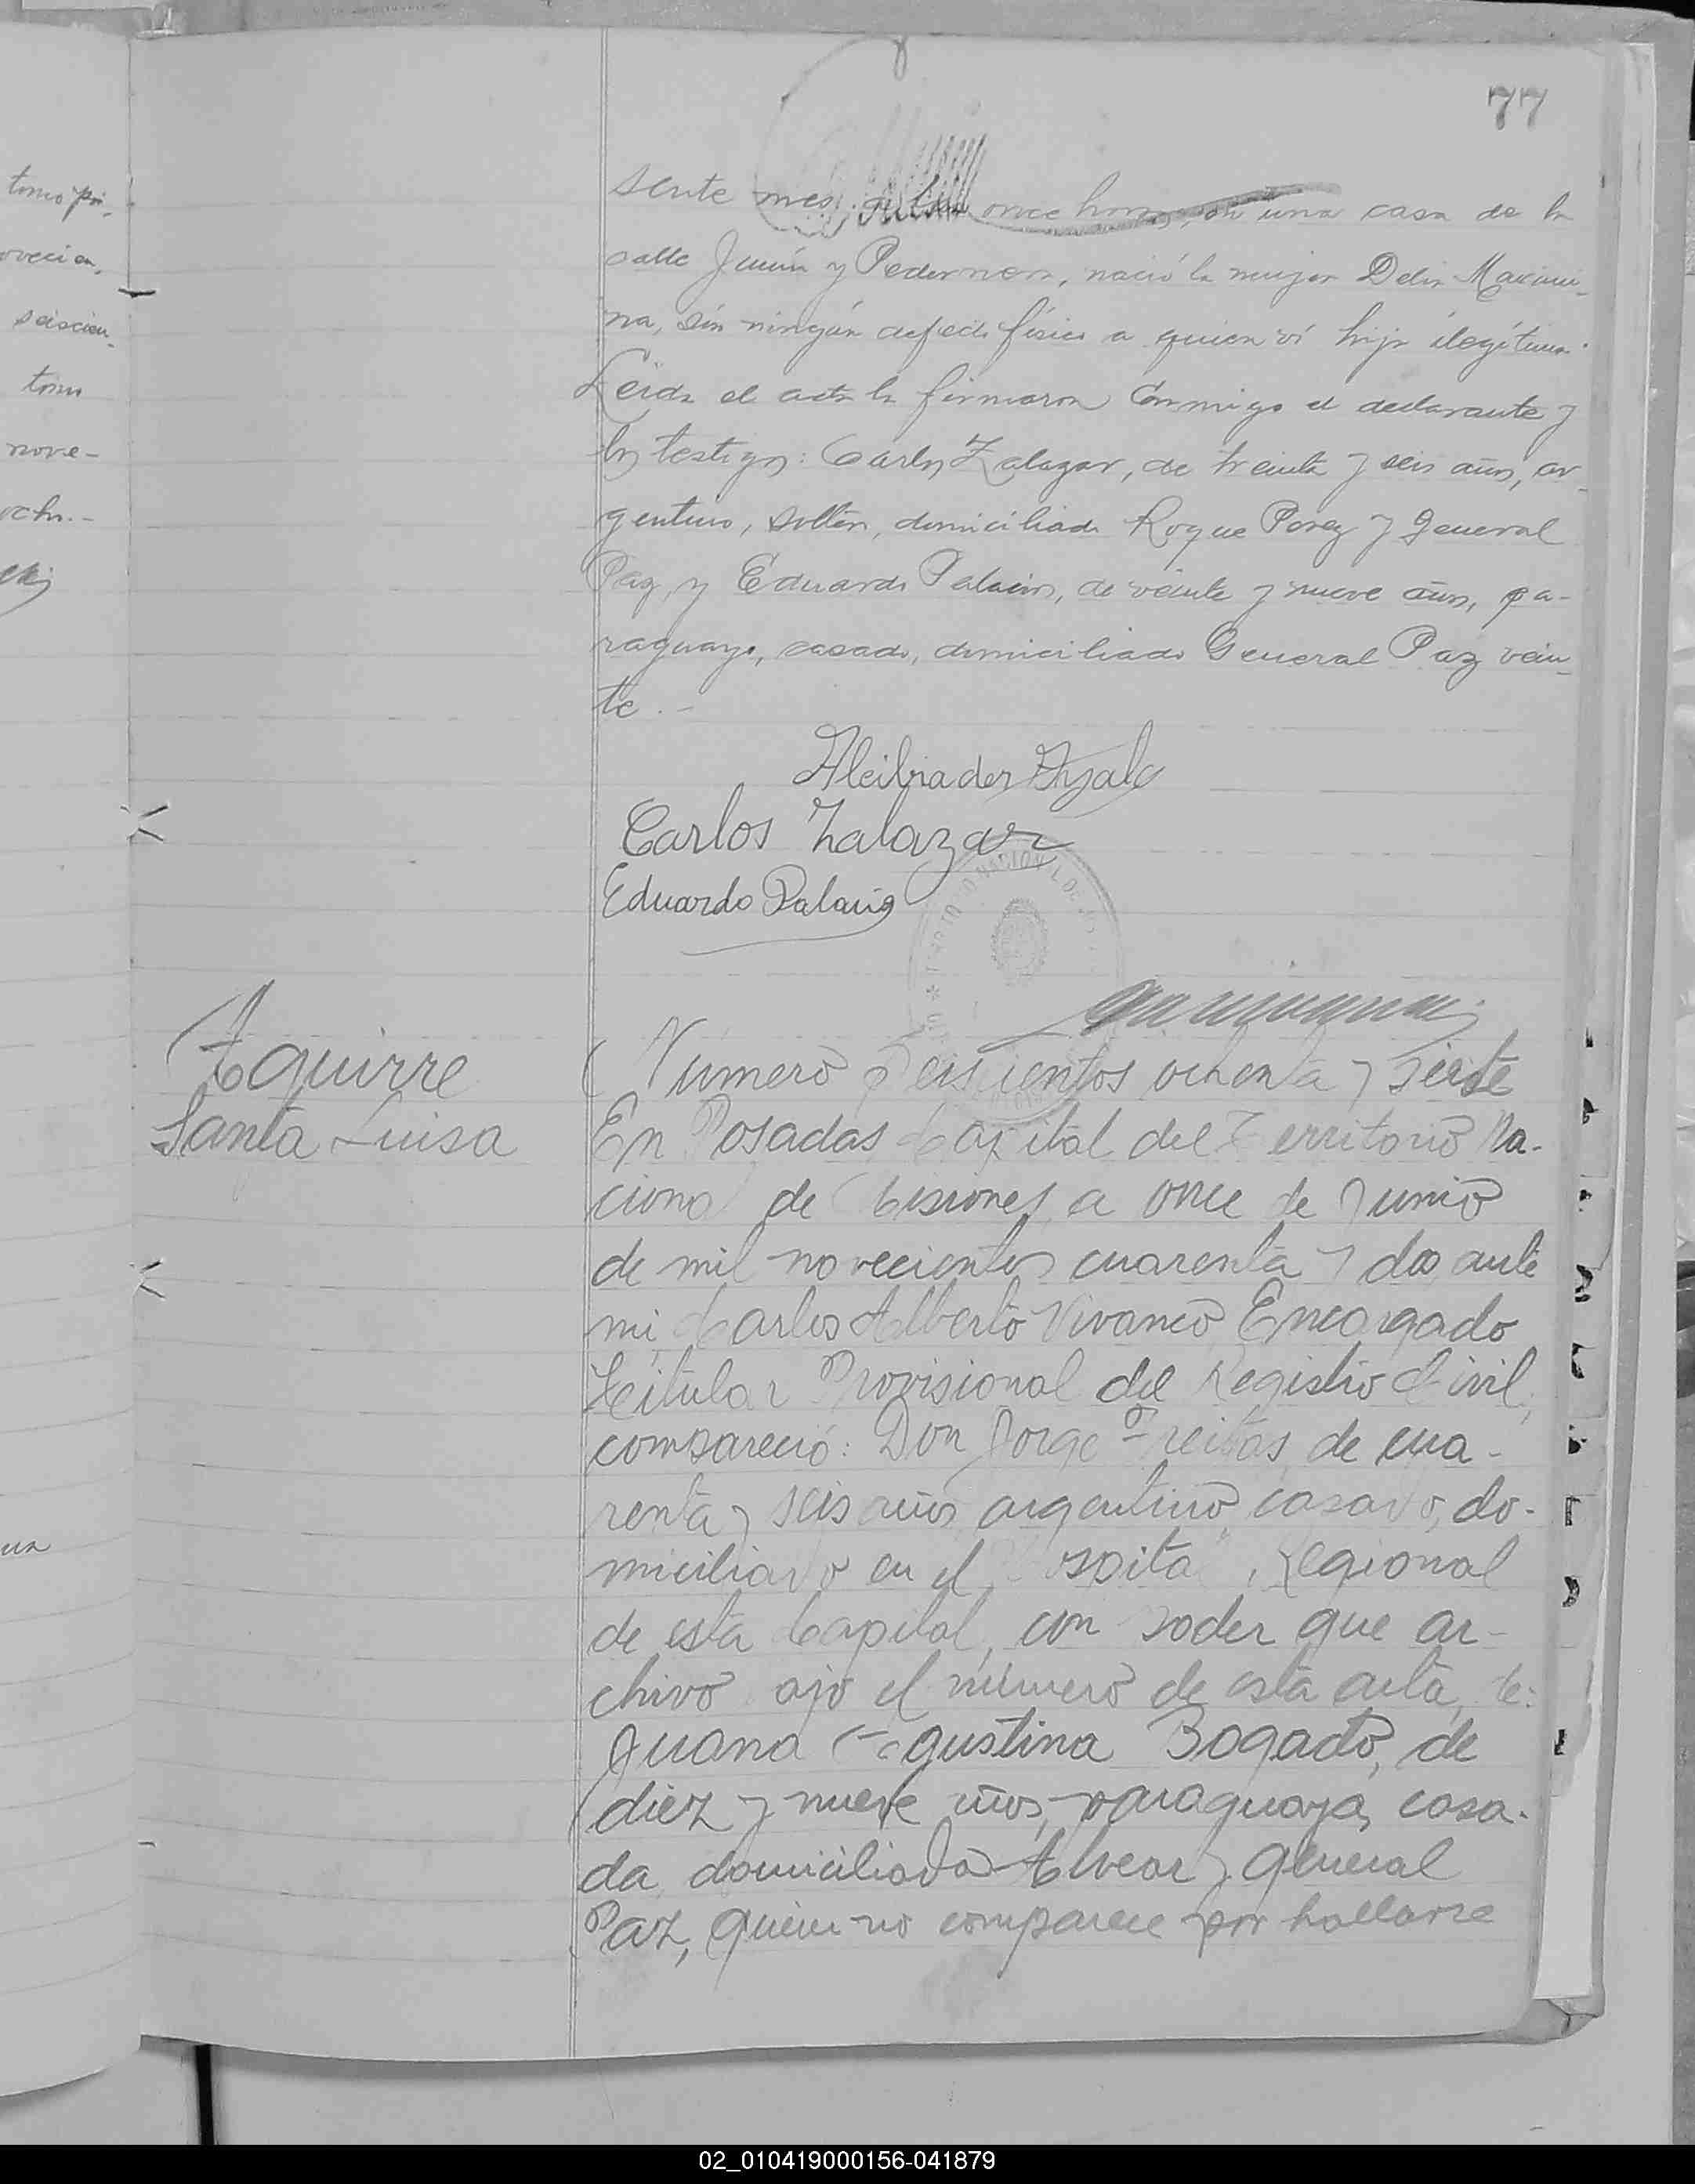 77
tomo pri-
sente mes, a las once horas, en una casa de la
ovecien,
calle Junín y Pedernera, nació la mujer Delia Maximi-
seiscien-
na, sin ningún defecto físico a quien ví hija ilegítima.
tomo
Leída el acta la firmaron conmigo el declarante y
nove-
los testigos: Carlos Zalazar, de treinta y seis años, ar-
ocho.-
gentino, soltero, domiciliado Roque Perez y General
Paz, y Eduardo Palacios, de veinte y nueve años, pa-
raguayo, casado, domiciliado General Paz vein-
te.-
Alcibiades
Carlos Zalazar
Eduardo Palacios
Aguirre
Santa Luisa
Número seiscientos ochenta y siete
En Posadas Capital del Territorio Na-
cional de Misiones, a once de Junio
de mil novecientos cuarenta y dos, ante
mi, Carlos Alberto Vivanco, Encargado
Titular Provisional del Registro Civil,
compareció: Don Jorge Freitas, de cua-
renta y seis años, argentino, casado, do-
miciliado en el Hospital Regional
de esta Capital, con poder que ar-
chivo bajo el número de esta acta, de:
Juana Agustina Bogado, de
diez y nueve años, paraguaya, casa-
da, domiciliada Alvear y General
Paz, quien no comparece por hallarse
02_010419000156-041879